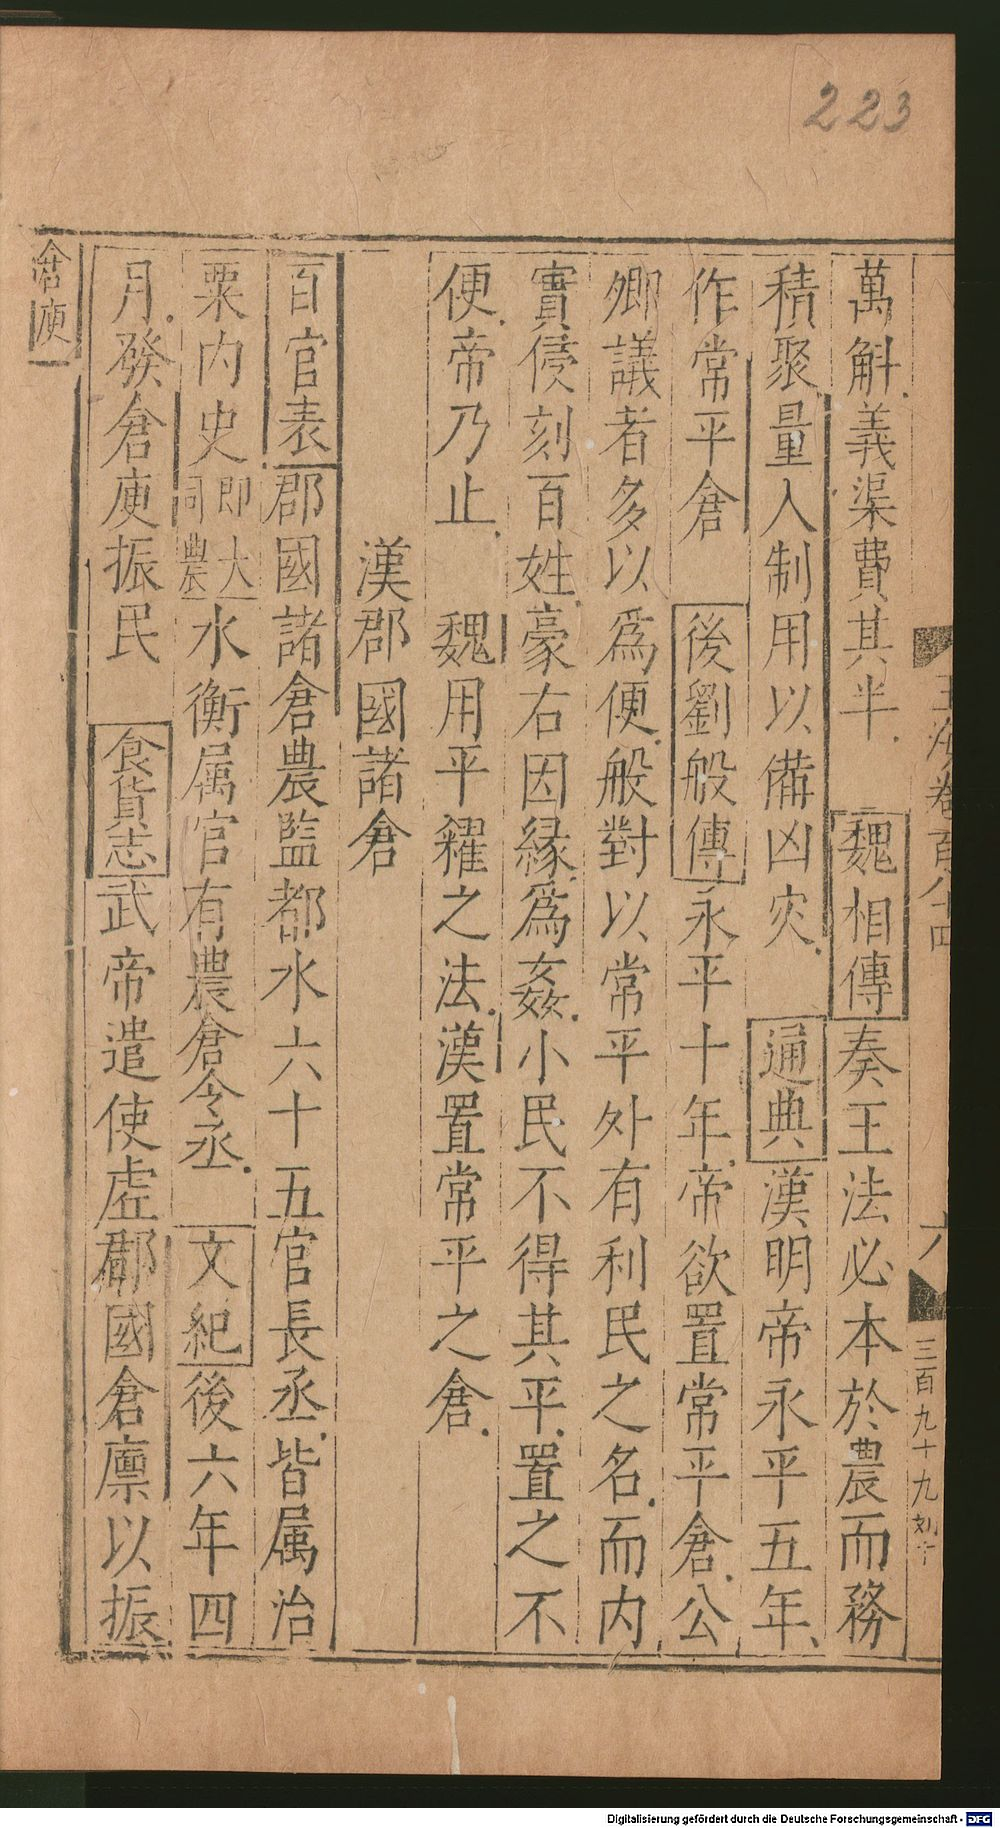 223
玉海卷百八十四
六
三百九十九
萬斛義渠費其半　魏相傳奏王法必本於農而務
積聚量入制用以備凶灾　通典漢明帝永平五年
作常平倉　後劉般傳永平十年帝欲置常平倉公
卿議者多以爲便般對以常平外有利民之名而内
實侵刻百姓豪右因緣爲姦小民不得其平置之不
便帝乃止　魏用平糴之法漢置常平之倉
漢郡國諸倉
百官表郡國諸倉農監都水六十五官長丞皆属治
粟内史即大司農水衡属官有農倉令丞　文紀後六年四
月發倉庾振民　食貨志武帝遣使虚郡國倉廪以振
倉庾
Digitalisierung gefördert durch die Deutsche Forschungsgemeinschaft - DFG